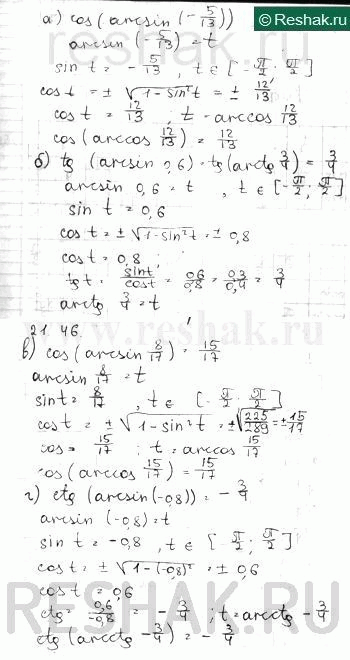 ©Reshak.ru
а) cos(arcsin(-5/13))
arcsin(-5/13) = t
sin t = -5/13, t ∈ [-π/2; π/2]
cos t = ± √(1-sin²t) = ± 12/13
cos t = 12/13, t = arccos 12/13
cos(arccos 12/13) = 12/13
б) tg (arcsin 0,6) = tg(arctg 3/4) = 3/4
arcsin 0,6 = t, t ∈ [-π/2; π/2]
sin t = 0,6
cos t = ± √(1-sin²t) = ± 0,8
cos t = 0,8
tg t = sin t/cos t = 0,6/0,8 = 0,3/0,4 = 3/4
arctg 3/4 = t
21.46
в) cos(arcsin 8/17) = 15/17
arcsin 8/17 = t
sin t = 8/17, t ∈ [-π/2; π/2]
cos t = ± √(1-sin²t) = ±√(225/289) = ± 15/17
cos = 15/17; t = arccos 15/17
cos(arccos 15/17) = 15/17
г) ctg (arcsin(-0,8)) = -3/4
arcsin (-0,8) = t
sin t = -0,8, t ∈ [-π/2; π/2]
cos t = ± √(1-(-0,8)²) = ± 0,6
cos t = 0,6
ctg = 0,6/-0,8 = -3/4; t = arcctg -3/4
ctg (arcctg -3/4) = -3/4
reshak.ru
RESHAK.RU